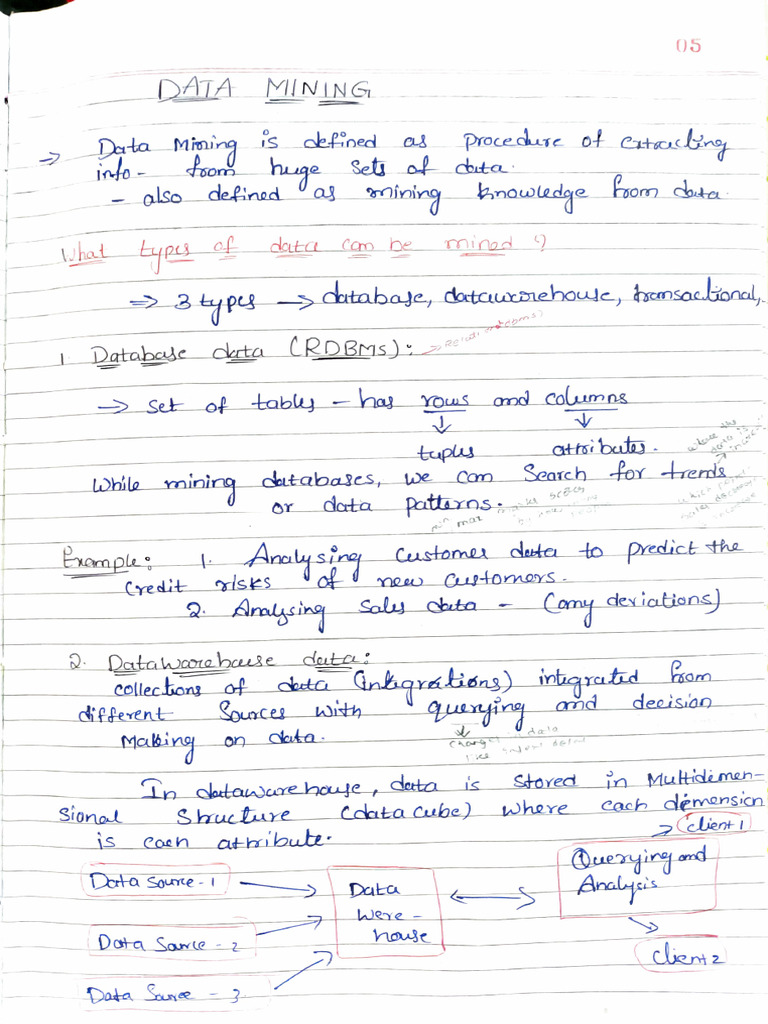 05
DATA MINING
⇒ Data Mining is defined as procedure of extracting
info- from huge sets of data.
- also defined as mining knowledge from data.
What types of data can be mined?
⇒ 3 types → database, datawarehouse, transactional,
1. Database data (RDBMS):
→ set of tables - has rows and columns
↓ ↓
tuples attributes.
While mining databases, we can Search for trends
or data patterns.
min max
Example: 1. Analysing customer data to predict the
credit risks of new customers.
2. Analysing sales data - (any deviations)
2. Datawarehouse data:
collections of data (integrations) integrated from
different Sources with querying and decision
Making on data.
In datawarehouse, data is stored in Multidimen-
sional structure (data cube) where each dimension
is each attribute.
client 1
Data source - 1
Data
Were -
house
Querying and
Analysis
Data Source - 2
client 2
Data Source - 3